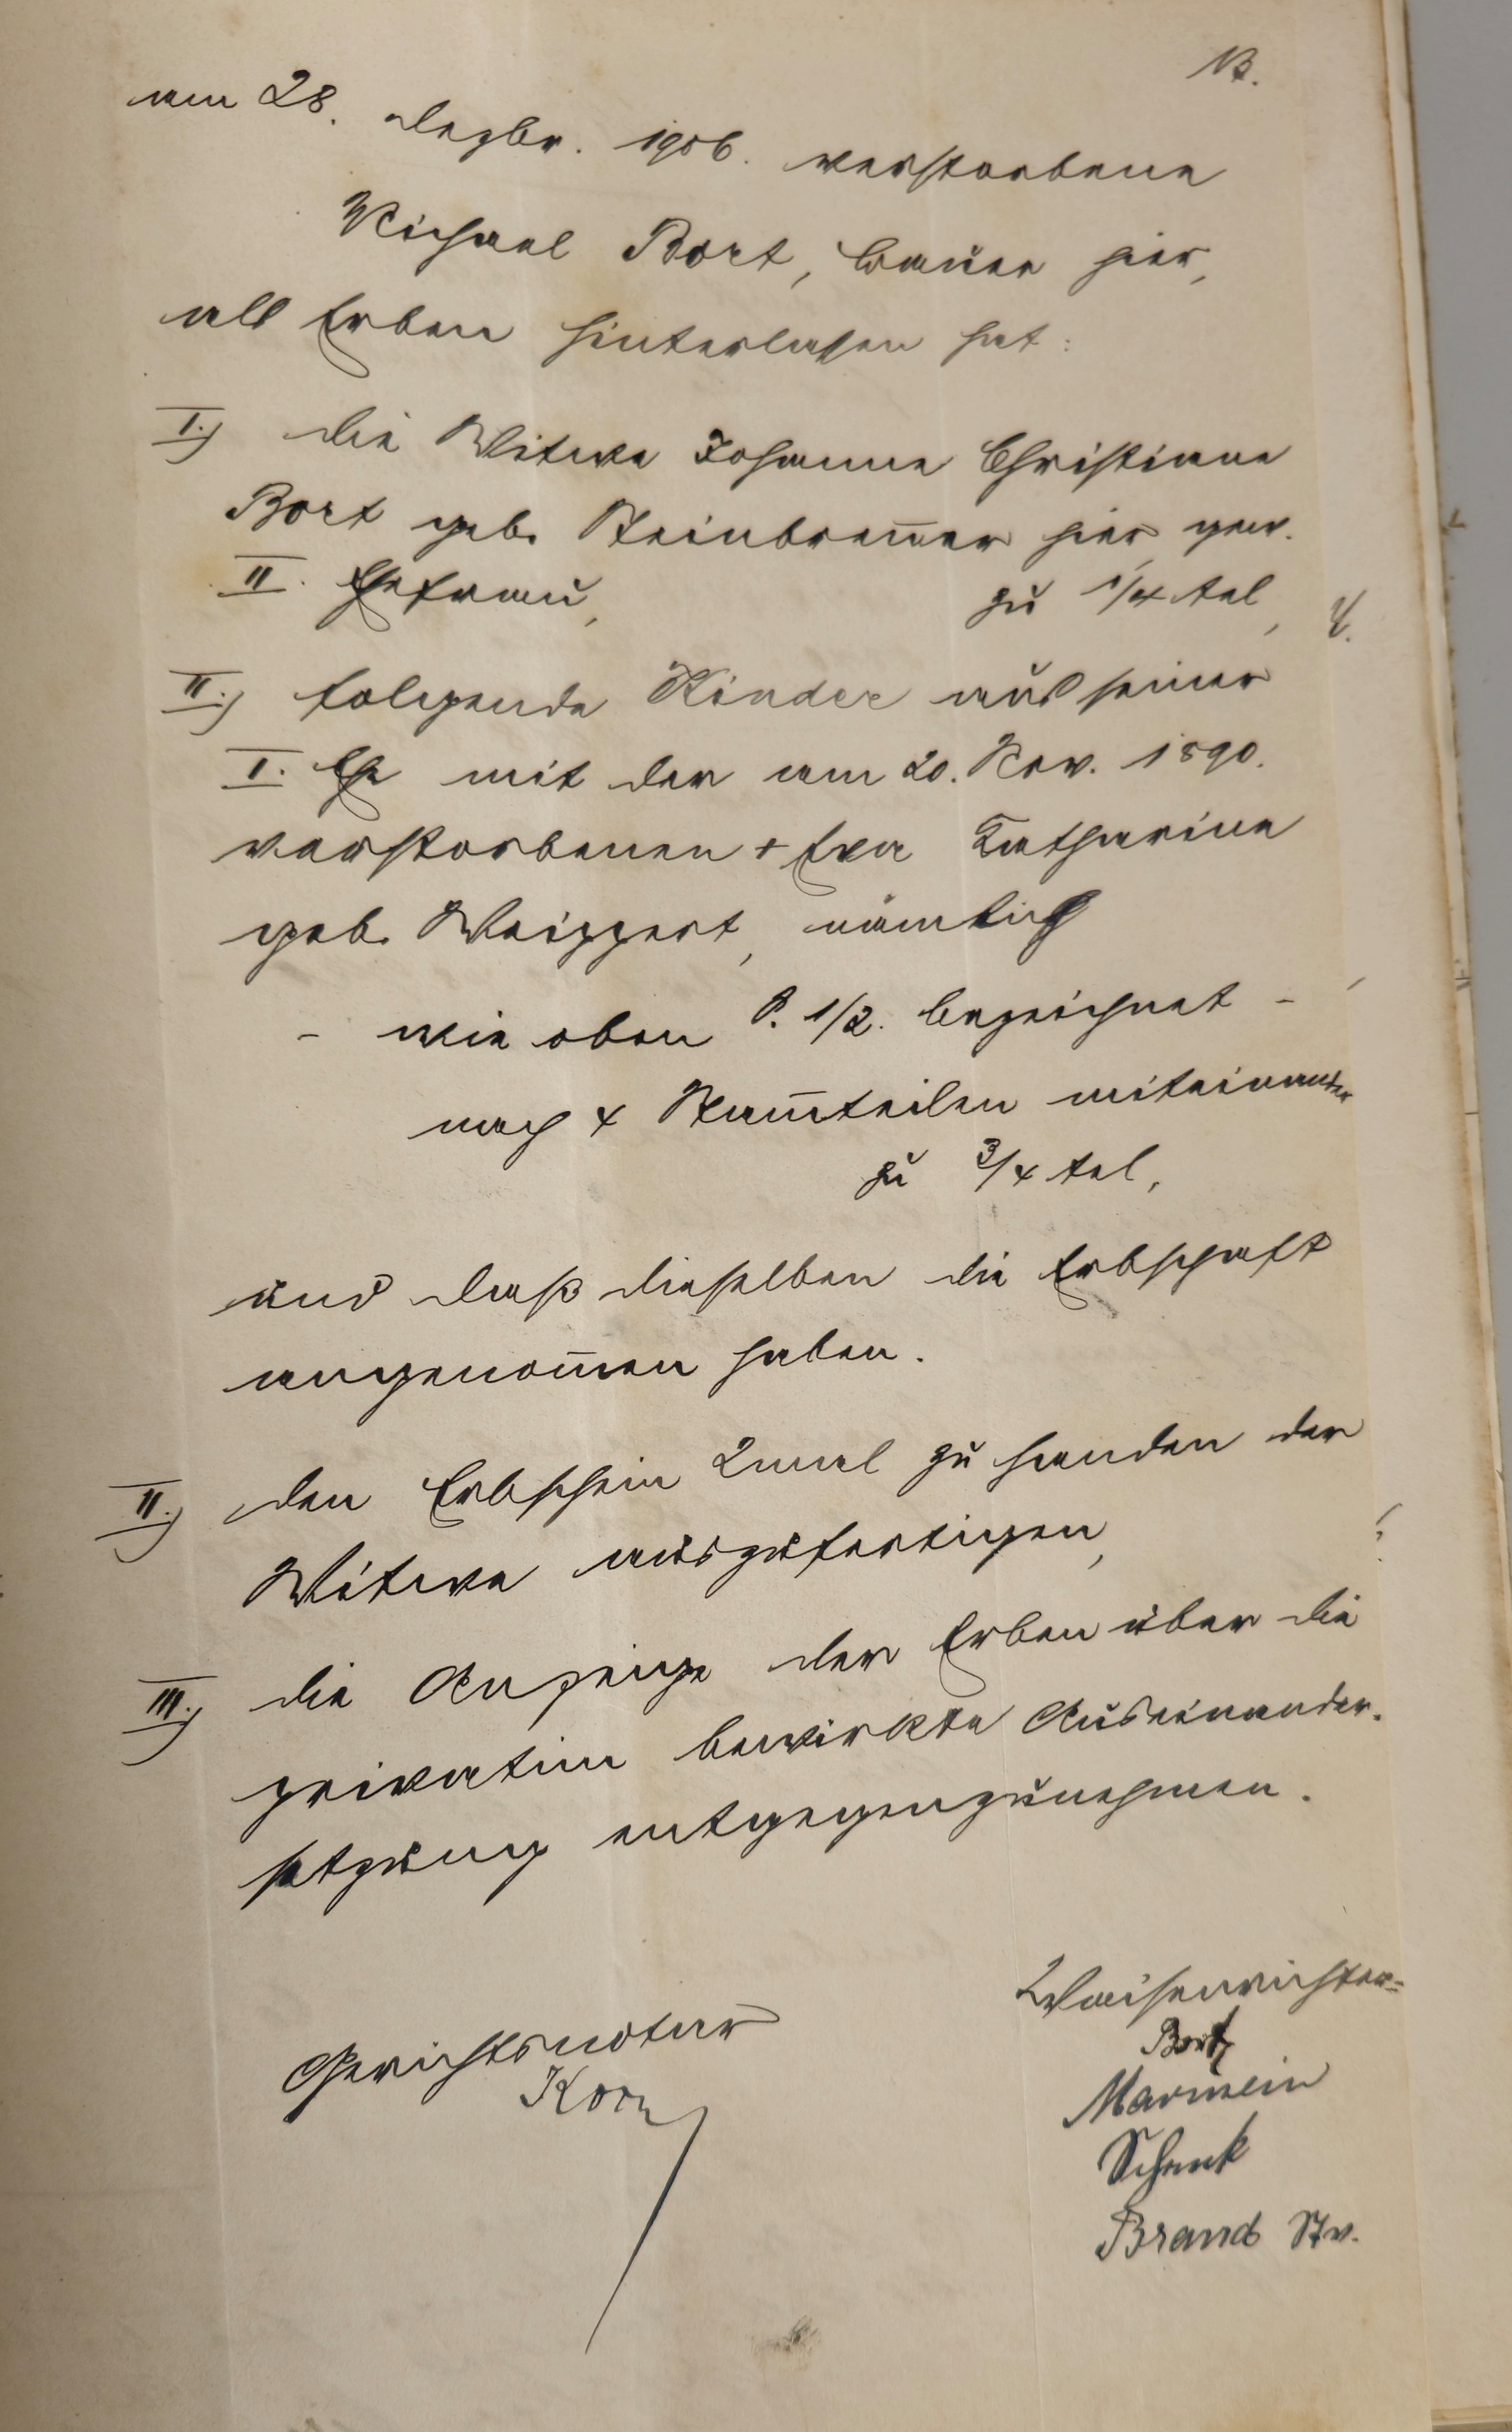 13.
am 28. Dezbr. 1906. verstorbene
Michael Bort, Bauer hier,
als Erben hinterlassen hat:
I.) die Witwe Johanne Christiane
Bort geb. Steinbrenner hier gew.
II. Ehefrau, zu 1/4tel,
II.) folgende Kinder aus seiner
I. Ehe mit der am 20. Nov. 1890.
verstorbenen + Eva Katharine
geb. Weippert, nämlich
- wie oben S. 1/2. bezeichnet -
nach 4 Stammteilen miteinander
zu 3/4tel,
und daß dieselben die Erbschaft
angenommen haben.
II.) den Erbschein 2mal zu handen der
Witwe auszufertigen,
III.) die Anzeige der Erben über die
privatim bewirkte Auseinander-
setzung entgegenzunehmen.
Waisenrichter=
Gerichtsnotar
Bort
Marwein
Schenk
Brand Stv.